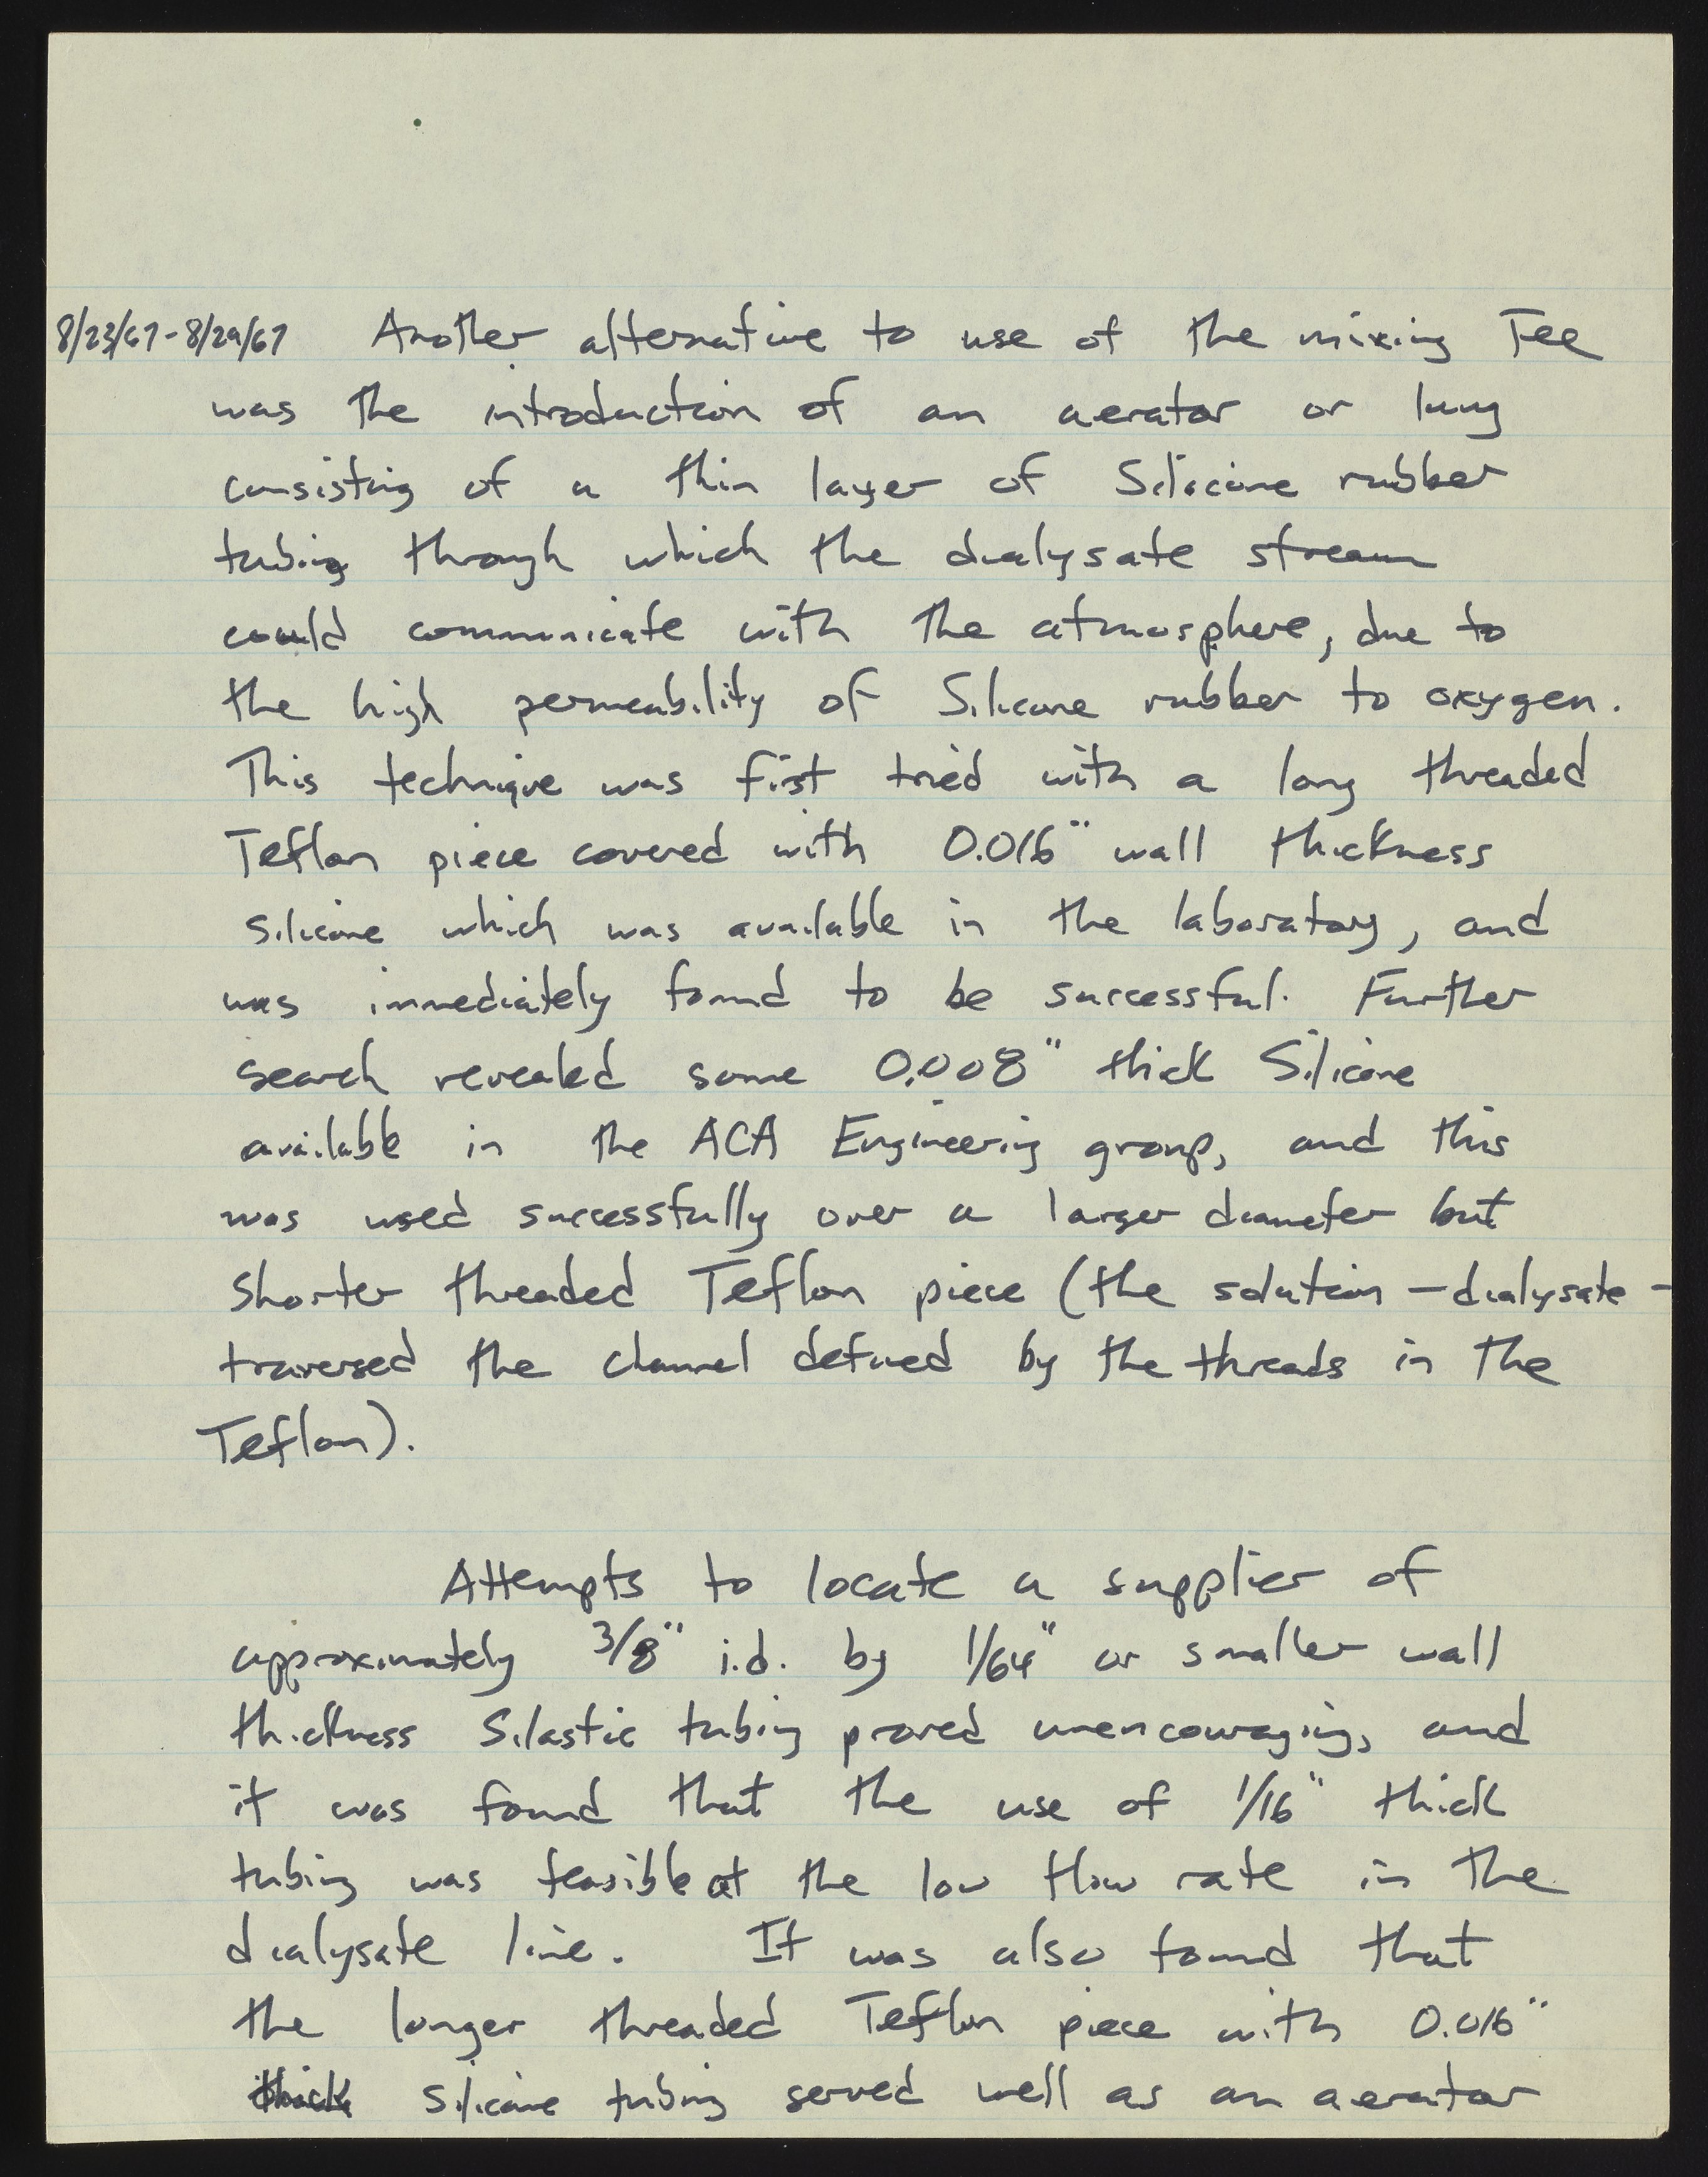 8/23/67-8/29/67 Another alternative to use of the mixing Tee
was the introduction of an aerator or lung
consisting of a thin layer of Silicone rubber
tubing through which the dialysate stream
could communicate with the atmosphere, due to
the high permeability of Silicone rubber to oxygen.
This technique was first tried with a long threaded
Teflon piece covered with 0.016" wall thickness
silicone which was available in the laboratory, and
was immediately found to be successful. Further
search revealed some 0.008" thick Silicone
available in the ACA Engineering group, and this
was used successfully over a larger diameter but
shorter threaded Teflon piece (the solution - dialysate -
traversed the channel defined by the threads in the
Teflon).
Attempts to locate a supplier of
approximately 3/8" i.d. by 1/64" or smaller wall
thickness Silastic tubing proved unencouraging, and
it was found that the use of 1/16" thick
tubing was feasible at the low flow rate in the
dialysate line. It was also found that
the longer threaded Teflon piece with 0.016"
thick silicone tubing served well as an aerator